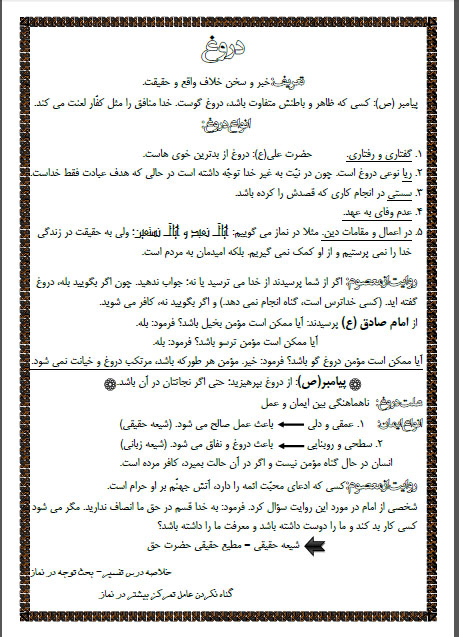 دروغ
تعریف: خبر و سخن خلاف واقع و حقیقت.
پیامبر (ص): کسی که ظاهر و باطنش متفاوت باشد، دروغ گوست. خدا منافق را مثل کفّار لعنت می کند.
انواع دروغ:
۱. گفتاری و رفتاری. حضرت علی(ع): دروغ از بدترین خوی هاست.
۲. ریا نوعی دروغ است. چون در نیّت به غیر خدا توجّه داشته است در حالی که هدف عبادت فقط خداست.
۳. سستی در انجام کاری که قصدش را کرده باشد.
۴. عدم وفای به عهد.
۵. در اعمال و مقامات دین. مثلا در نماز می گوییم: و : ولی به حقیقت در زندگی
خدا را نمی پرستیم و از او کمک نمی گیریم. بلکه امیدمان به مردم است.
روایت از معصوم: اگر از شما پرسیدند از خدا می ترسید یا نه؛ جواب ندهید. چون اگر بگویید بله، دروغ
گفته اید. (کسی خداترس است، گناه انجام نمی دهد.) و اگر بگویید نه، کافر می شوید.
از امام صادق (ع) پرسیدند: آیا ممکن است مؤمن بخیل باشد؟ فرمود: بله.
آیا ممکن است مؤمن ترسو باشد؟ فرمود: بله.
آیا ممکن است مؤمن دروغ گو باشد؟ فرمود: خیر. مؤمن هر طورکه باشد، مرتکب دروغ و خیانت نمی شود.
پیامبر(ص): از دروغ بپرهیزید؛ حتی اگر نجاتتان در آن باشد.
علت دروغ: ناهماهنگی بین ایمان و عمل
انواع ایمان: ۱. عمقی و دلی باعث عمل صالح می شود. (شیعه حقیقی)
۲. سطحی و روبنایی باعث دروغ و نفاق می شود. (شیعه زبانی)
انسان در حال گناه مؤمن نیست و اگر در آن حالت بمیرد، کافر مرده است.
روایت از معصوم: کسی که ادعای محبّت ائمه را دارد، آتش جهنّم بر او حرام است.
شخصی از امام در مورد این روایت سؤال کرد. فرمود: به خدا قسم در حق ما انصاف ندارید. مگر می شود
کسی کار بد کند و ما را دوست داشته باشد و معرفت ما را داشته باشد؟
شیعه حقیقی – مطیع حقیقی حضرت حق
خلاصه درس تفسیر – بحث توجه در نماز
گناه نکردن عامل تمرکز بیشتر در نماز